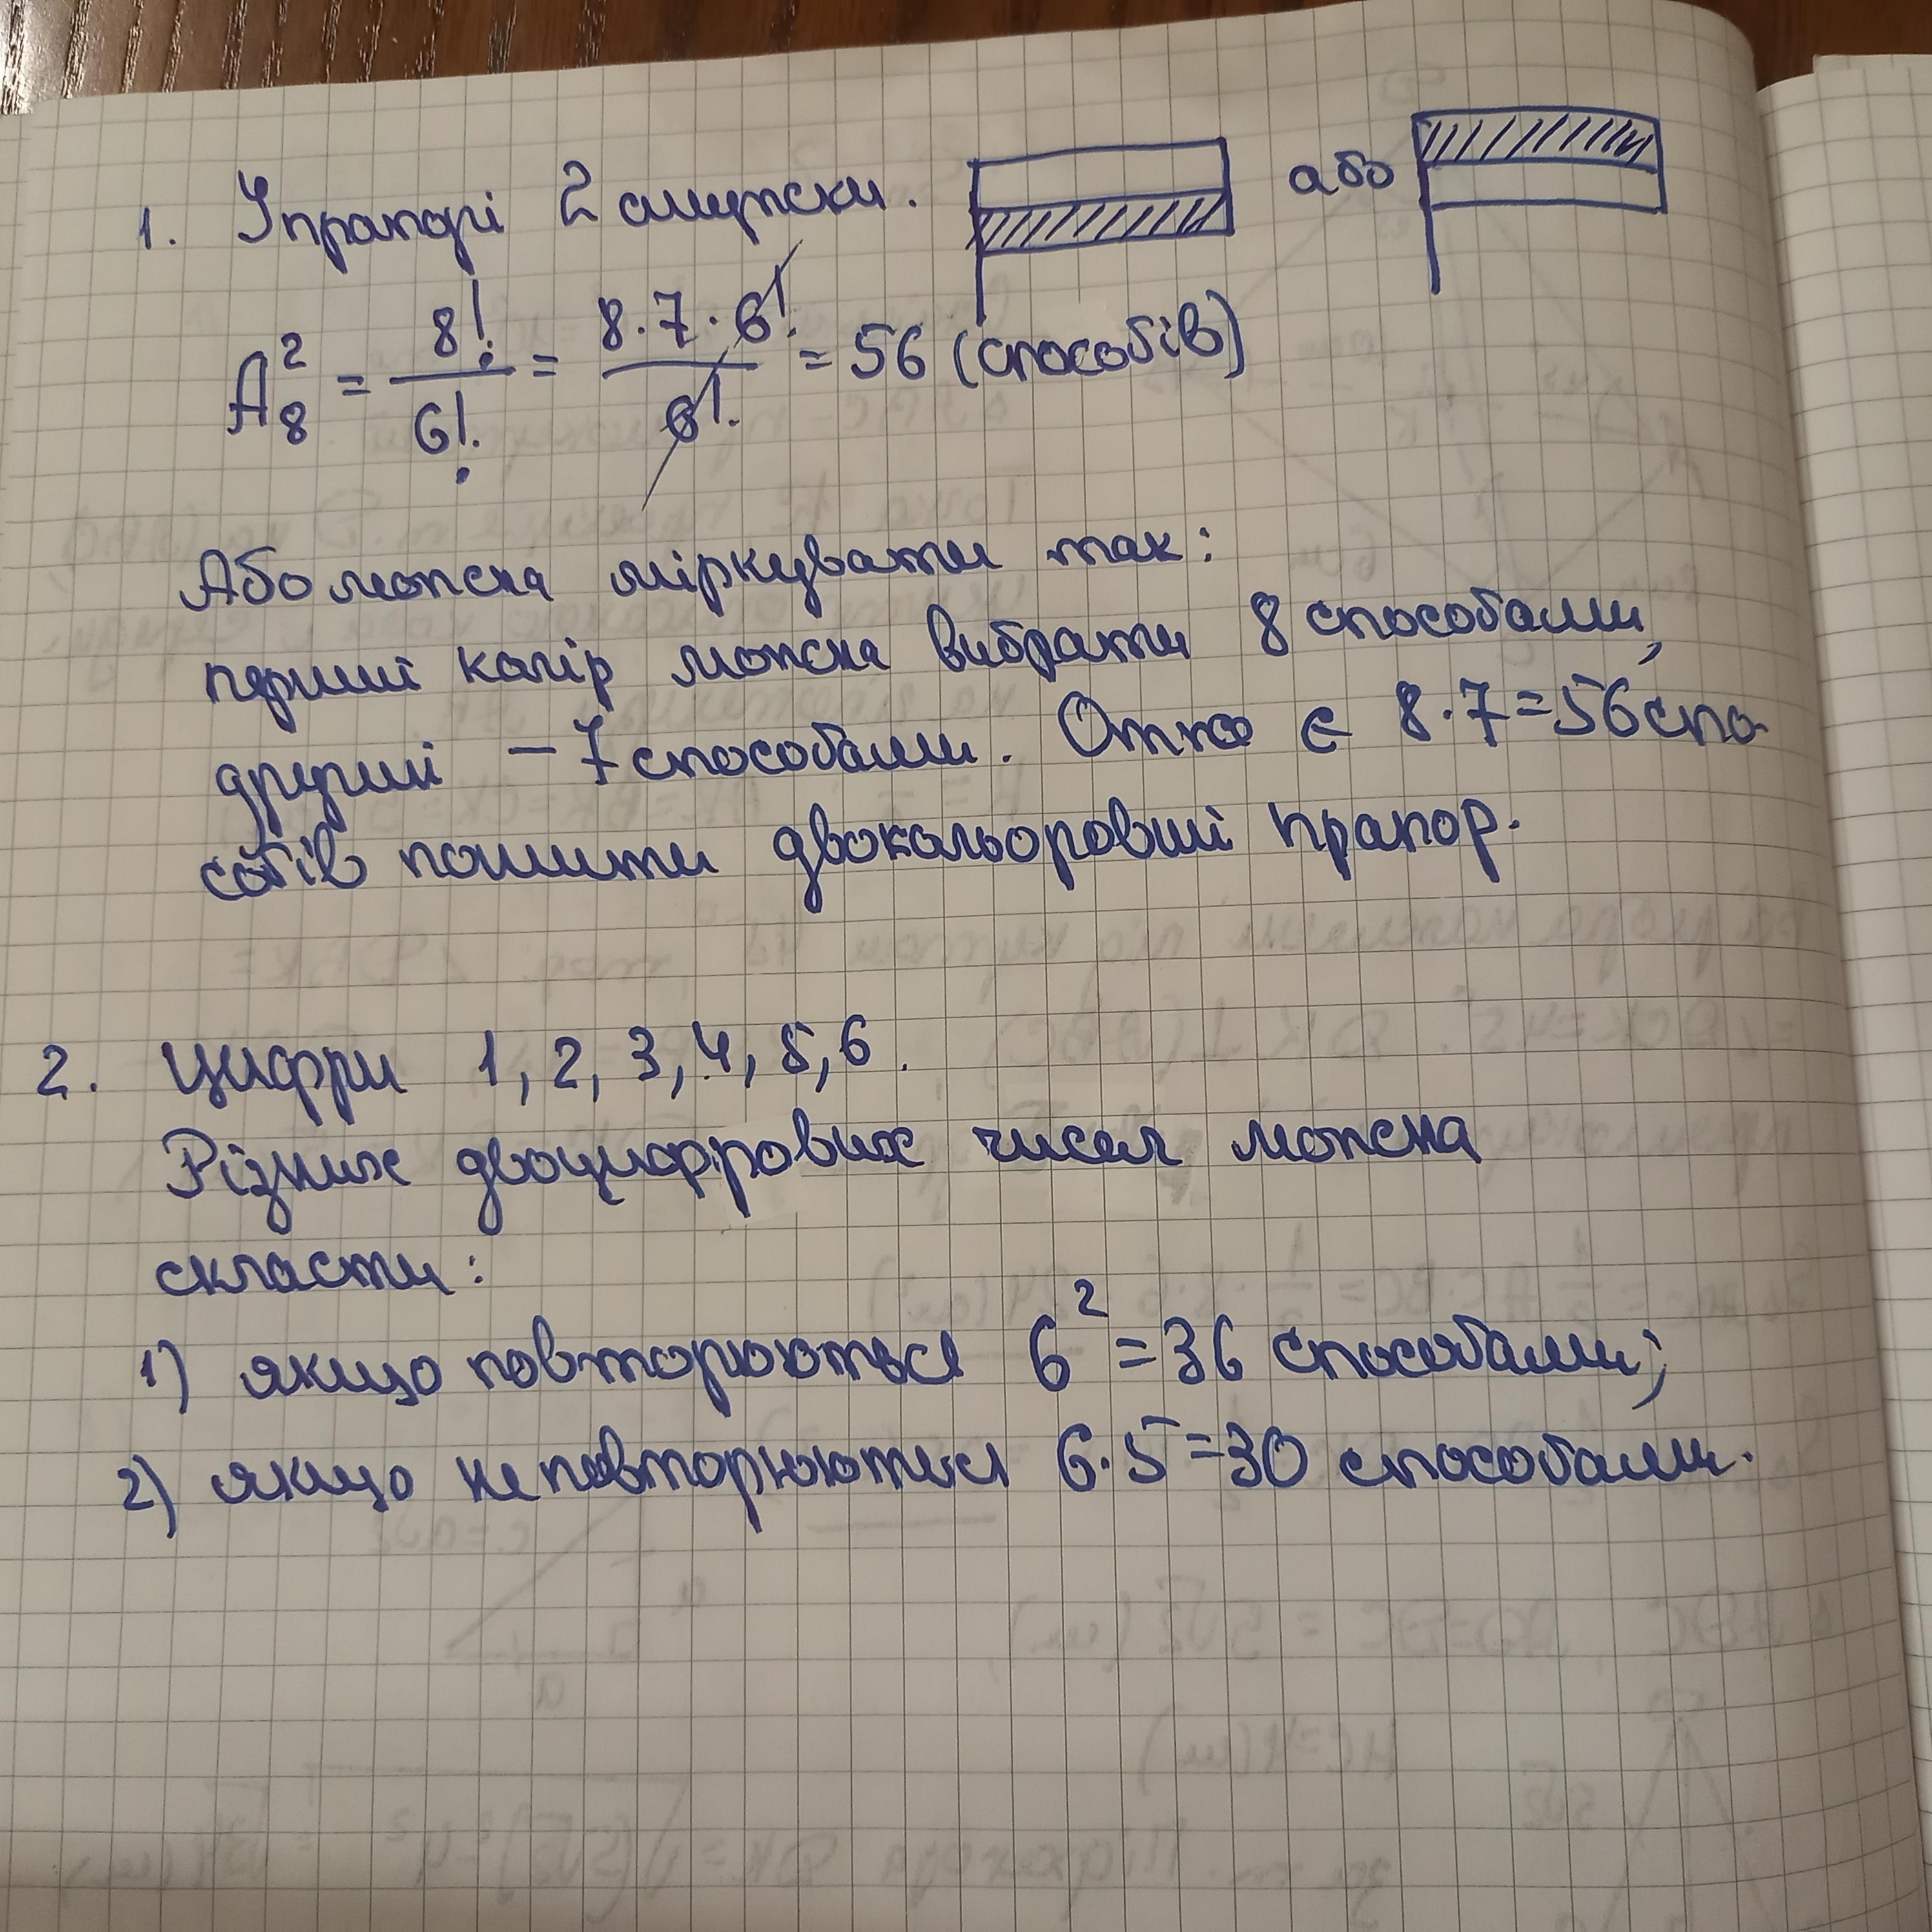 1. У прапорі 2 смужки. або
A₈² = 8!/6! = 8·7·6!/6! = 56 (способів)
Або можна міркувати так:
перший колір можна вибрати 8 способами,
другий – 7 способами. Отже є 8·7=56 спо-
собів пошити двокольоровий прапор.
2. Цифри 1, 2, 3, 4, 5, 6.
Різних двоцифрових чисел можна
скласти:
1) якщо повторюються 6² = 36 способами;
2) якщо не повторюються 6·5=30 способами.